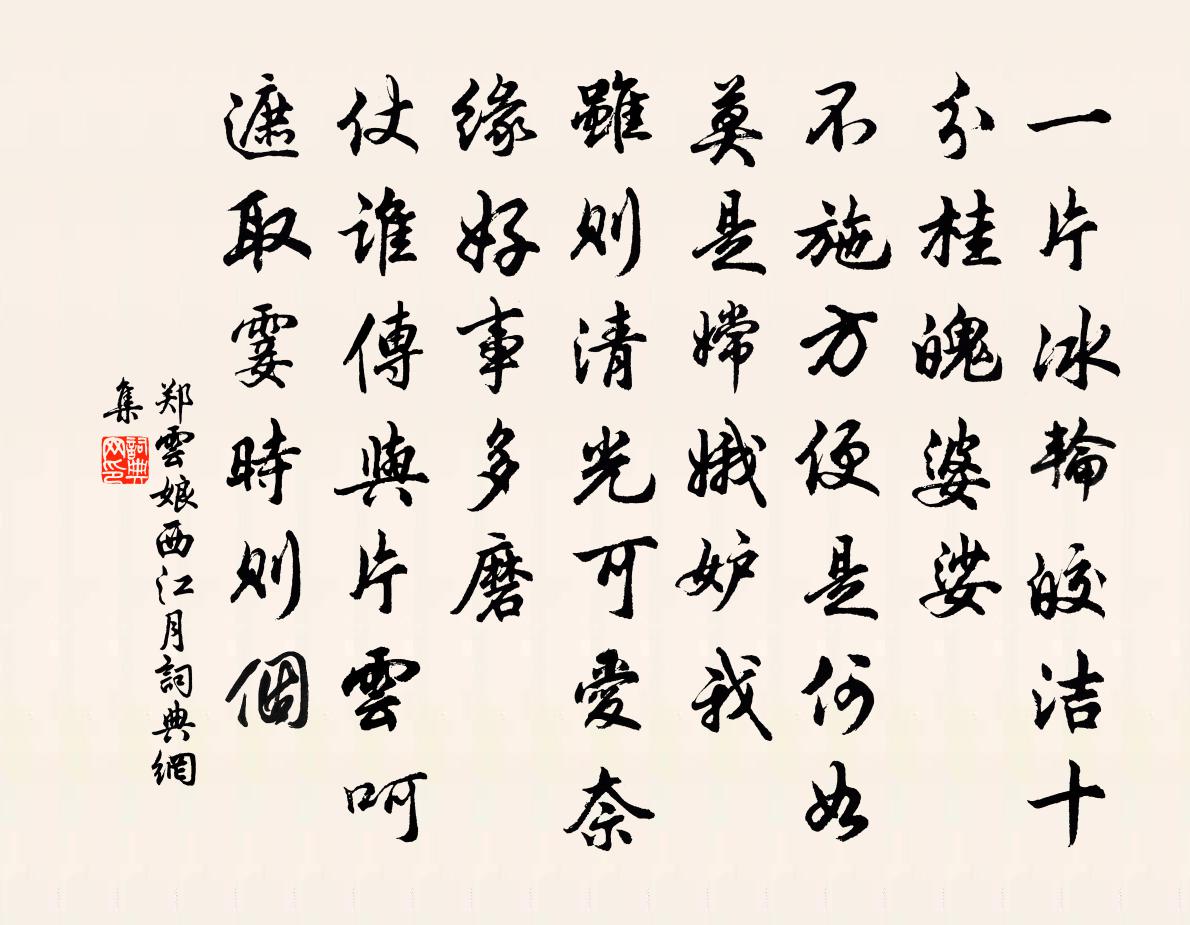 一片冰輪皎洁十
分桂魄婆娑
不施方便是何如
莫是嫦娥妒我
雖则清光可愛奈
緣好事多磨
仗谁傳與片雲呵
遮取霎時则個
郑雲娘西江月詞典網
集
詞典網印